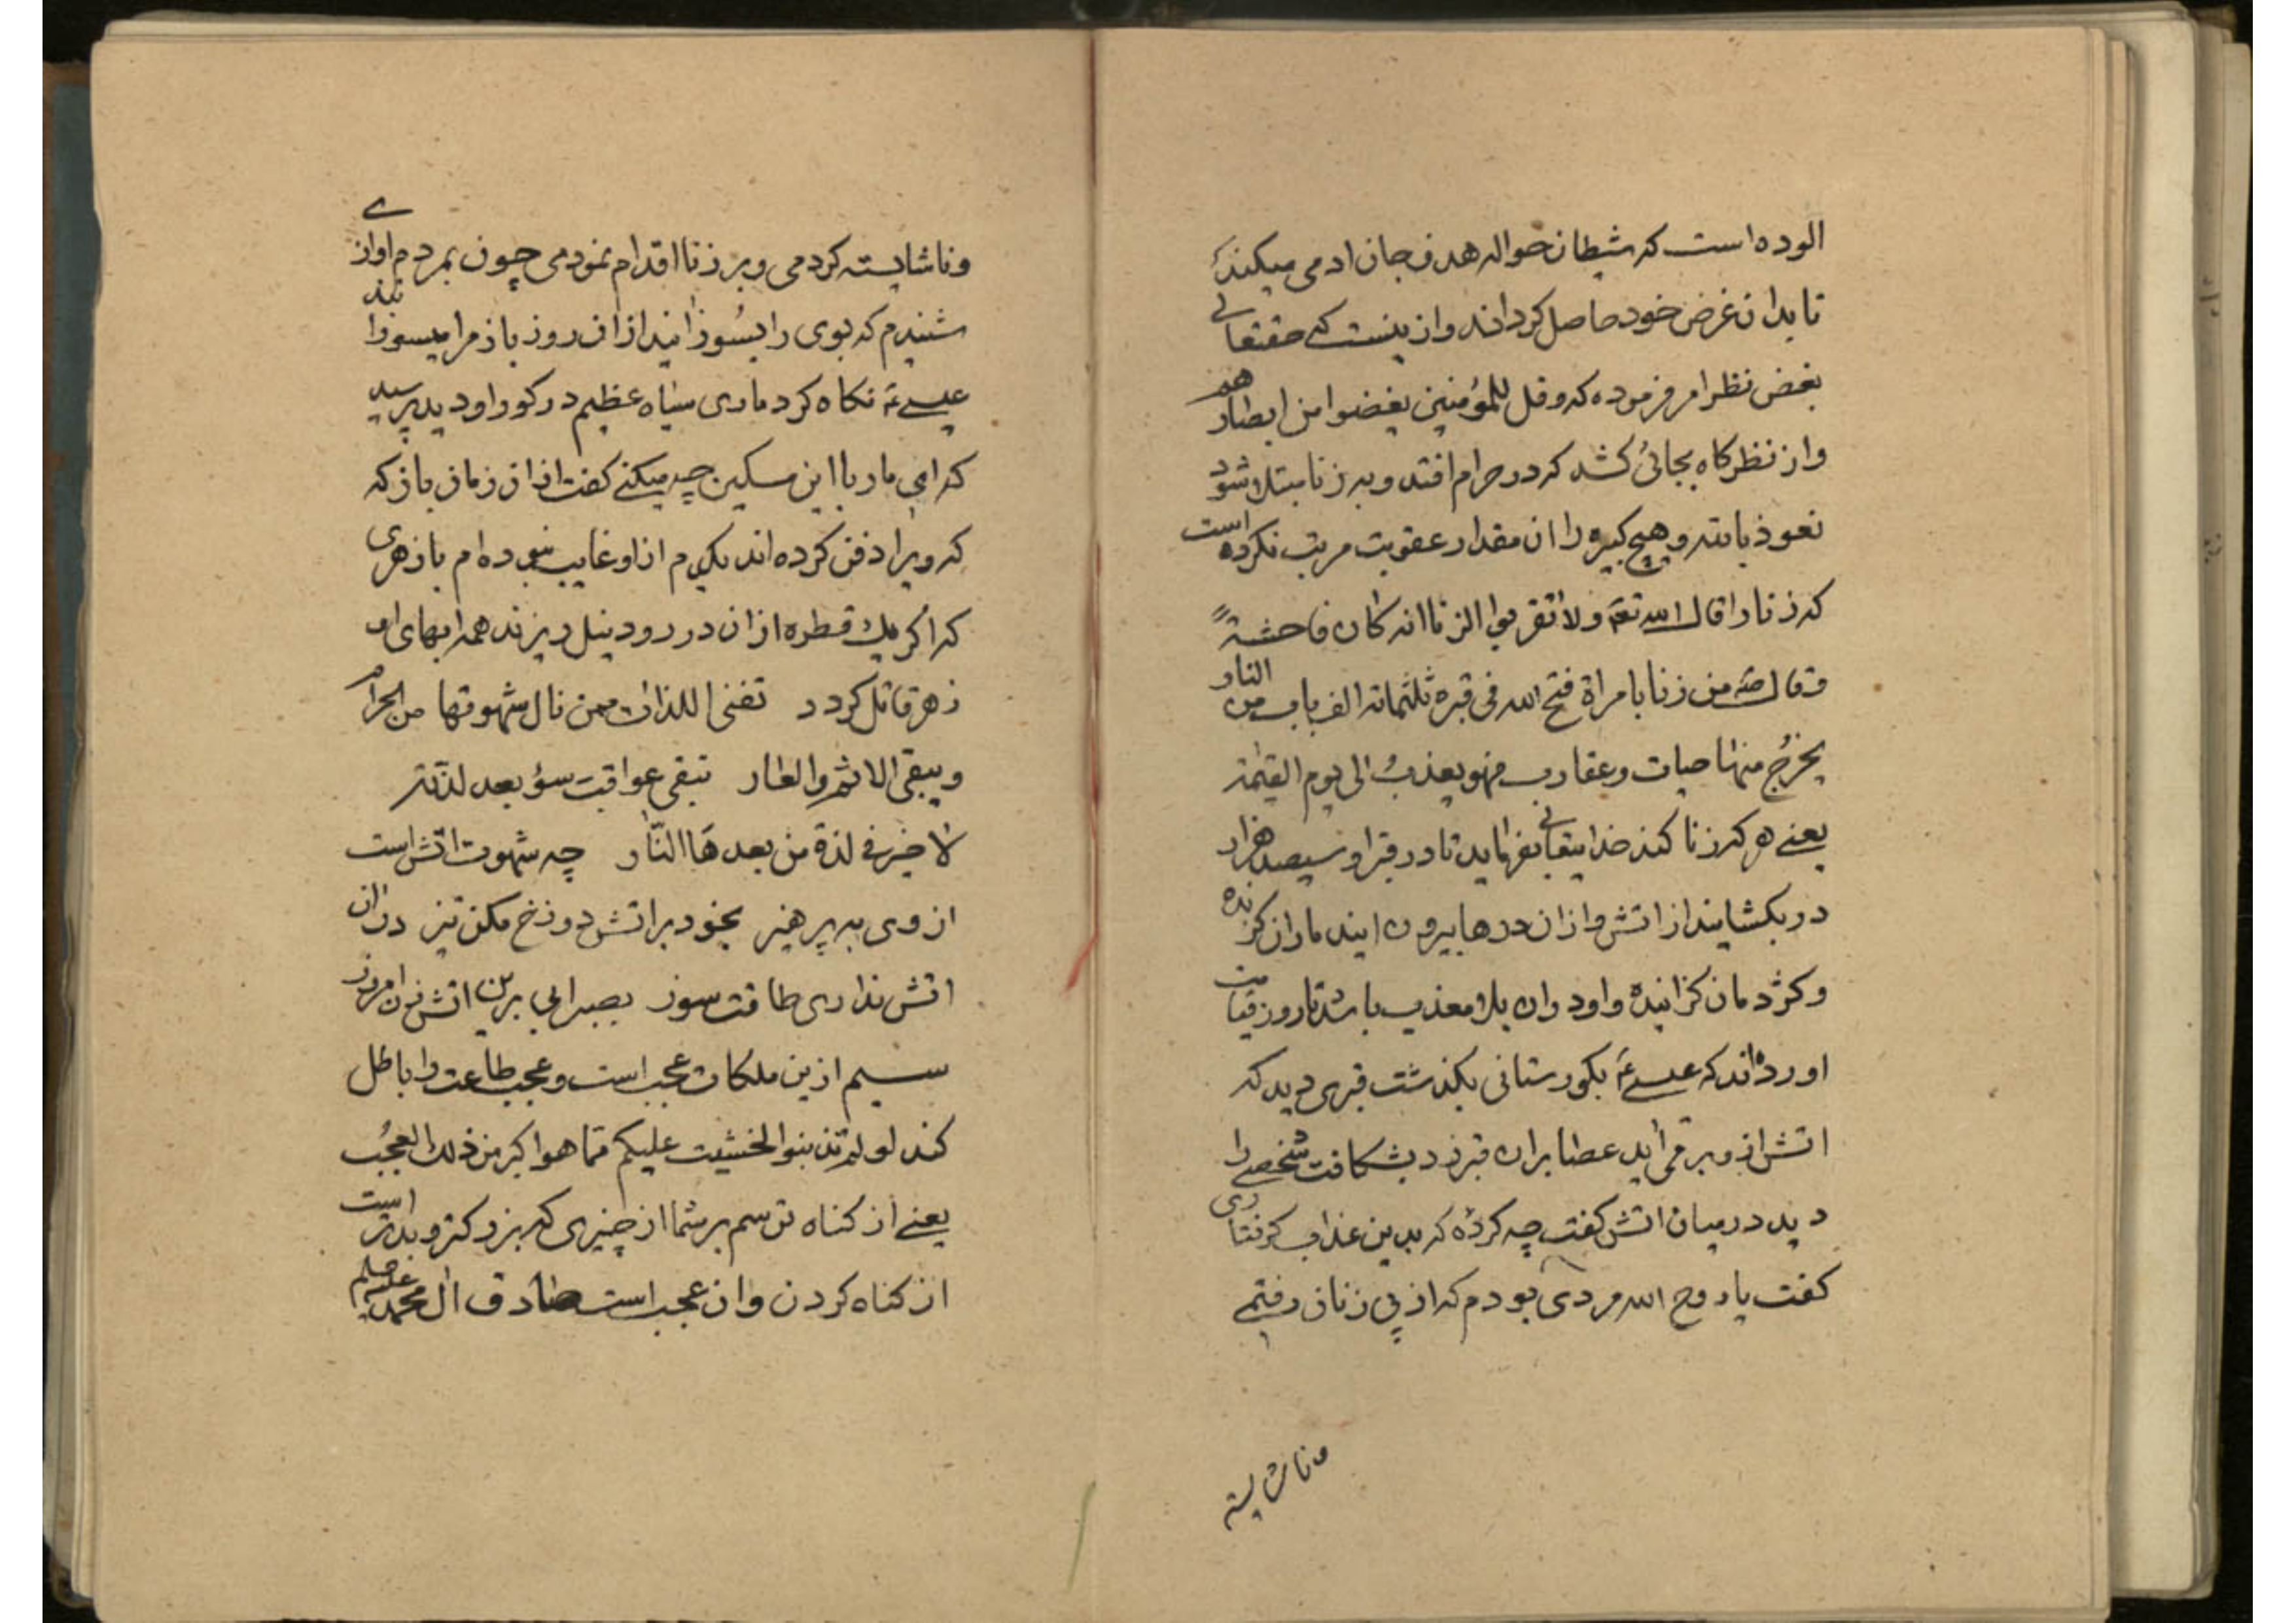 الوده است که شیطان حواله هدف جان ادمی میکند
تا بدان غرض خود حاصل کرداند وازینست که حقتعالی
بغض نظر امر فرموده که وقل للمؤمنین یغضوا من ابصارهم
واز نظر کاه بجائی کشد که در حرام افتد وبه زنا مبتلا شود
نعوذ بالله وهیچ کبیره را ان مقدار عقوبت مرتب نکرده است
که زنا را قال الله تعه ولا تقربوا الزنا انه کان فاحشةً
وقال من زنا بامراة فتح الله فی قبره ثلثمائة الف باب من النار
یخرُج منها حیات وعقارب فهو یعذبُ الی یوم القیمة
یعنے هرکه زنا کند خدایتعالی بفرماید تا در قبر او سیصد هزار
در بکشایند از اتش واز ان درها بیرون ایند ماران کزنده
وکژدمان کزانیده واو دران بلا معذب باشد تا روز قیامت
اورده‌اند که عیسےٰ عه بکورستانی بکذشت قبری دید که
اتش ازو برمی اید عصا بران قبر زد بشکافت شخصے را
دید در میان اتش کفت چه کردهٔ که بدین عذاب کرفتاری
کفت یا روح الله مردی بودم که از پی زنان رفتمے
وناشایسته
وناشایسته کردمی وبر زنا اقدام نمودمی چون بمردم اوازے
شنیدم که بوی را بسُوزانید ازان روز باز مرا میسوزانند
عیسے عه نکاه کرد ماری سیاه عظیم در کور او دید پرسید
که ای مار با این مسکین چه میکنے کفت ازان زمان باز که
که ویرا دفن کرده اند یکدم از او غایب نبوده ام با زهری
که اکر یك قطره ازان در رود نیل ریزند همه ابهای او
زهر قاتل کردد تفنی اللذات ممن نال شهوتها من الحرام
ویبقی الاثم والعار تبقی عواقب سؤ بعد لذته
لا خیر فی لذة من بعدها النّار چه شهوت اتش است
از وی بپرهیز بخود بر اتش دوزخ مکن تیز دران
اتش نداری طاقت سوز بصبر ابی برین اتش زن امروز
سیم ازین ملکات عجب است وعجب طاعت را باطل
کند لو لم تذنبوا لخشیت علیکم مما هو اکبر من ذلك العجُب
یعنے از کناه ترسم بر شما از چیزی که بزرکتر وبدتر است
از کناه کردن وان عجب است صادق ال محمد